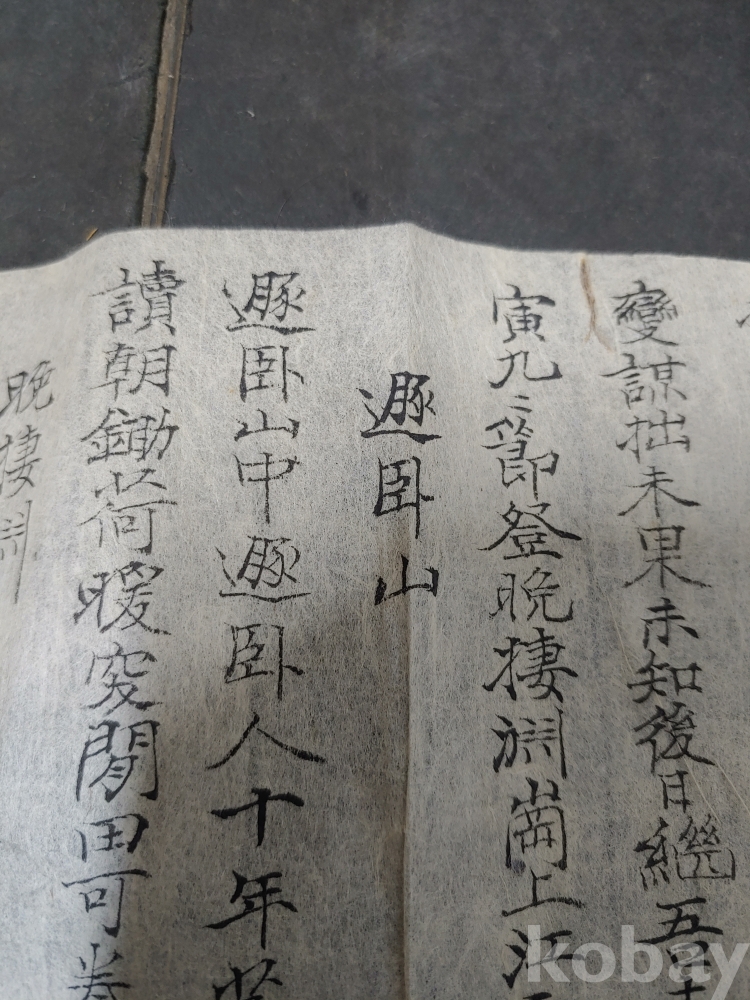 變謀拙未果未知後日繼吾
寅九〻節登晩棲淵崗上江
遯臥山
遯臥山中遯臥人十年
讀朝鋤荷暖突閒田可
晩棲淵
kobay